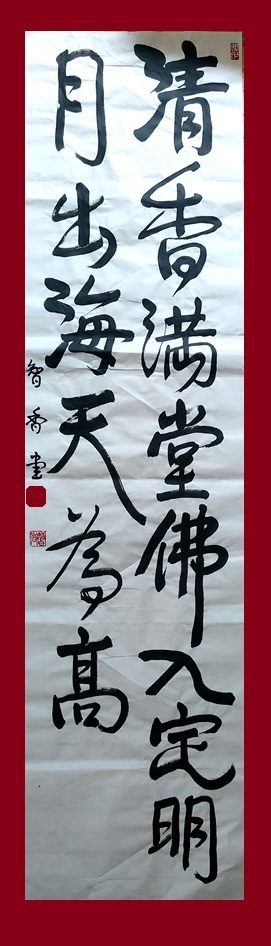 清香滿堂佛入定明
月出海天為高
智香書